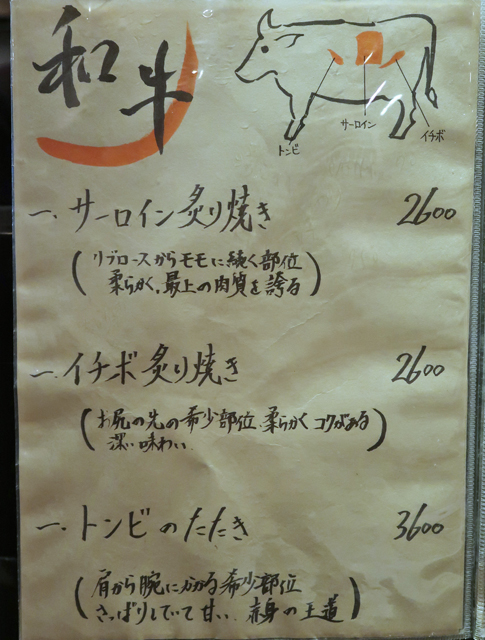 和牛
サーロイン
トンビ
イチボ
一. サーロイン炙り焼き 2600
(リブロースからモモに続く部位
柔らかく、最上の肉質を誇る)
一. イチボ炙り焼き 2600
(お尻の先の希少部位、柔らかくコクがある
深い味わい)
一. トンビのたたき 3600
(肩から腕にかかる希少部位
さっぱりしていて甘い、赤身の王道)